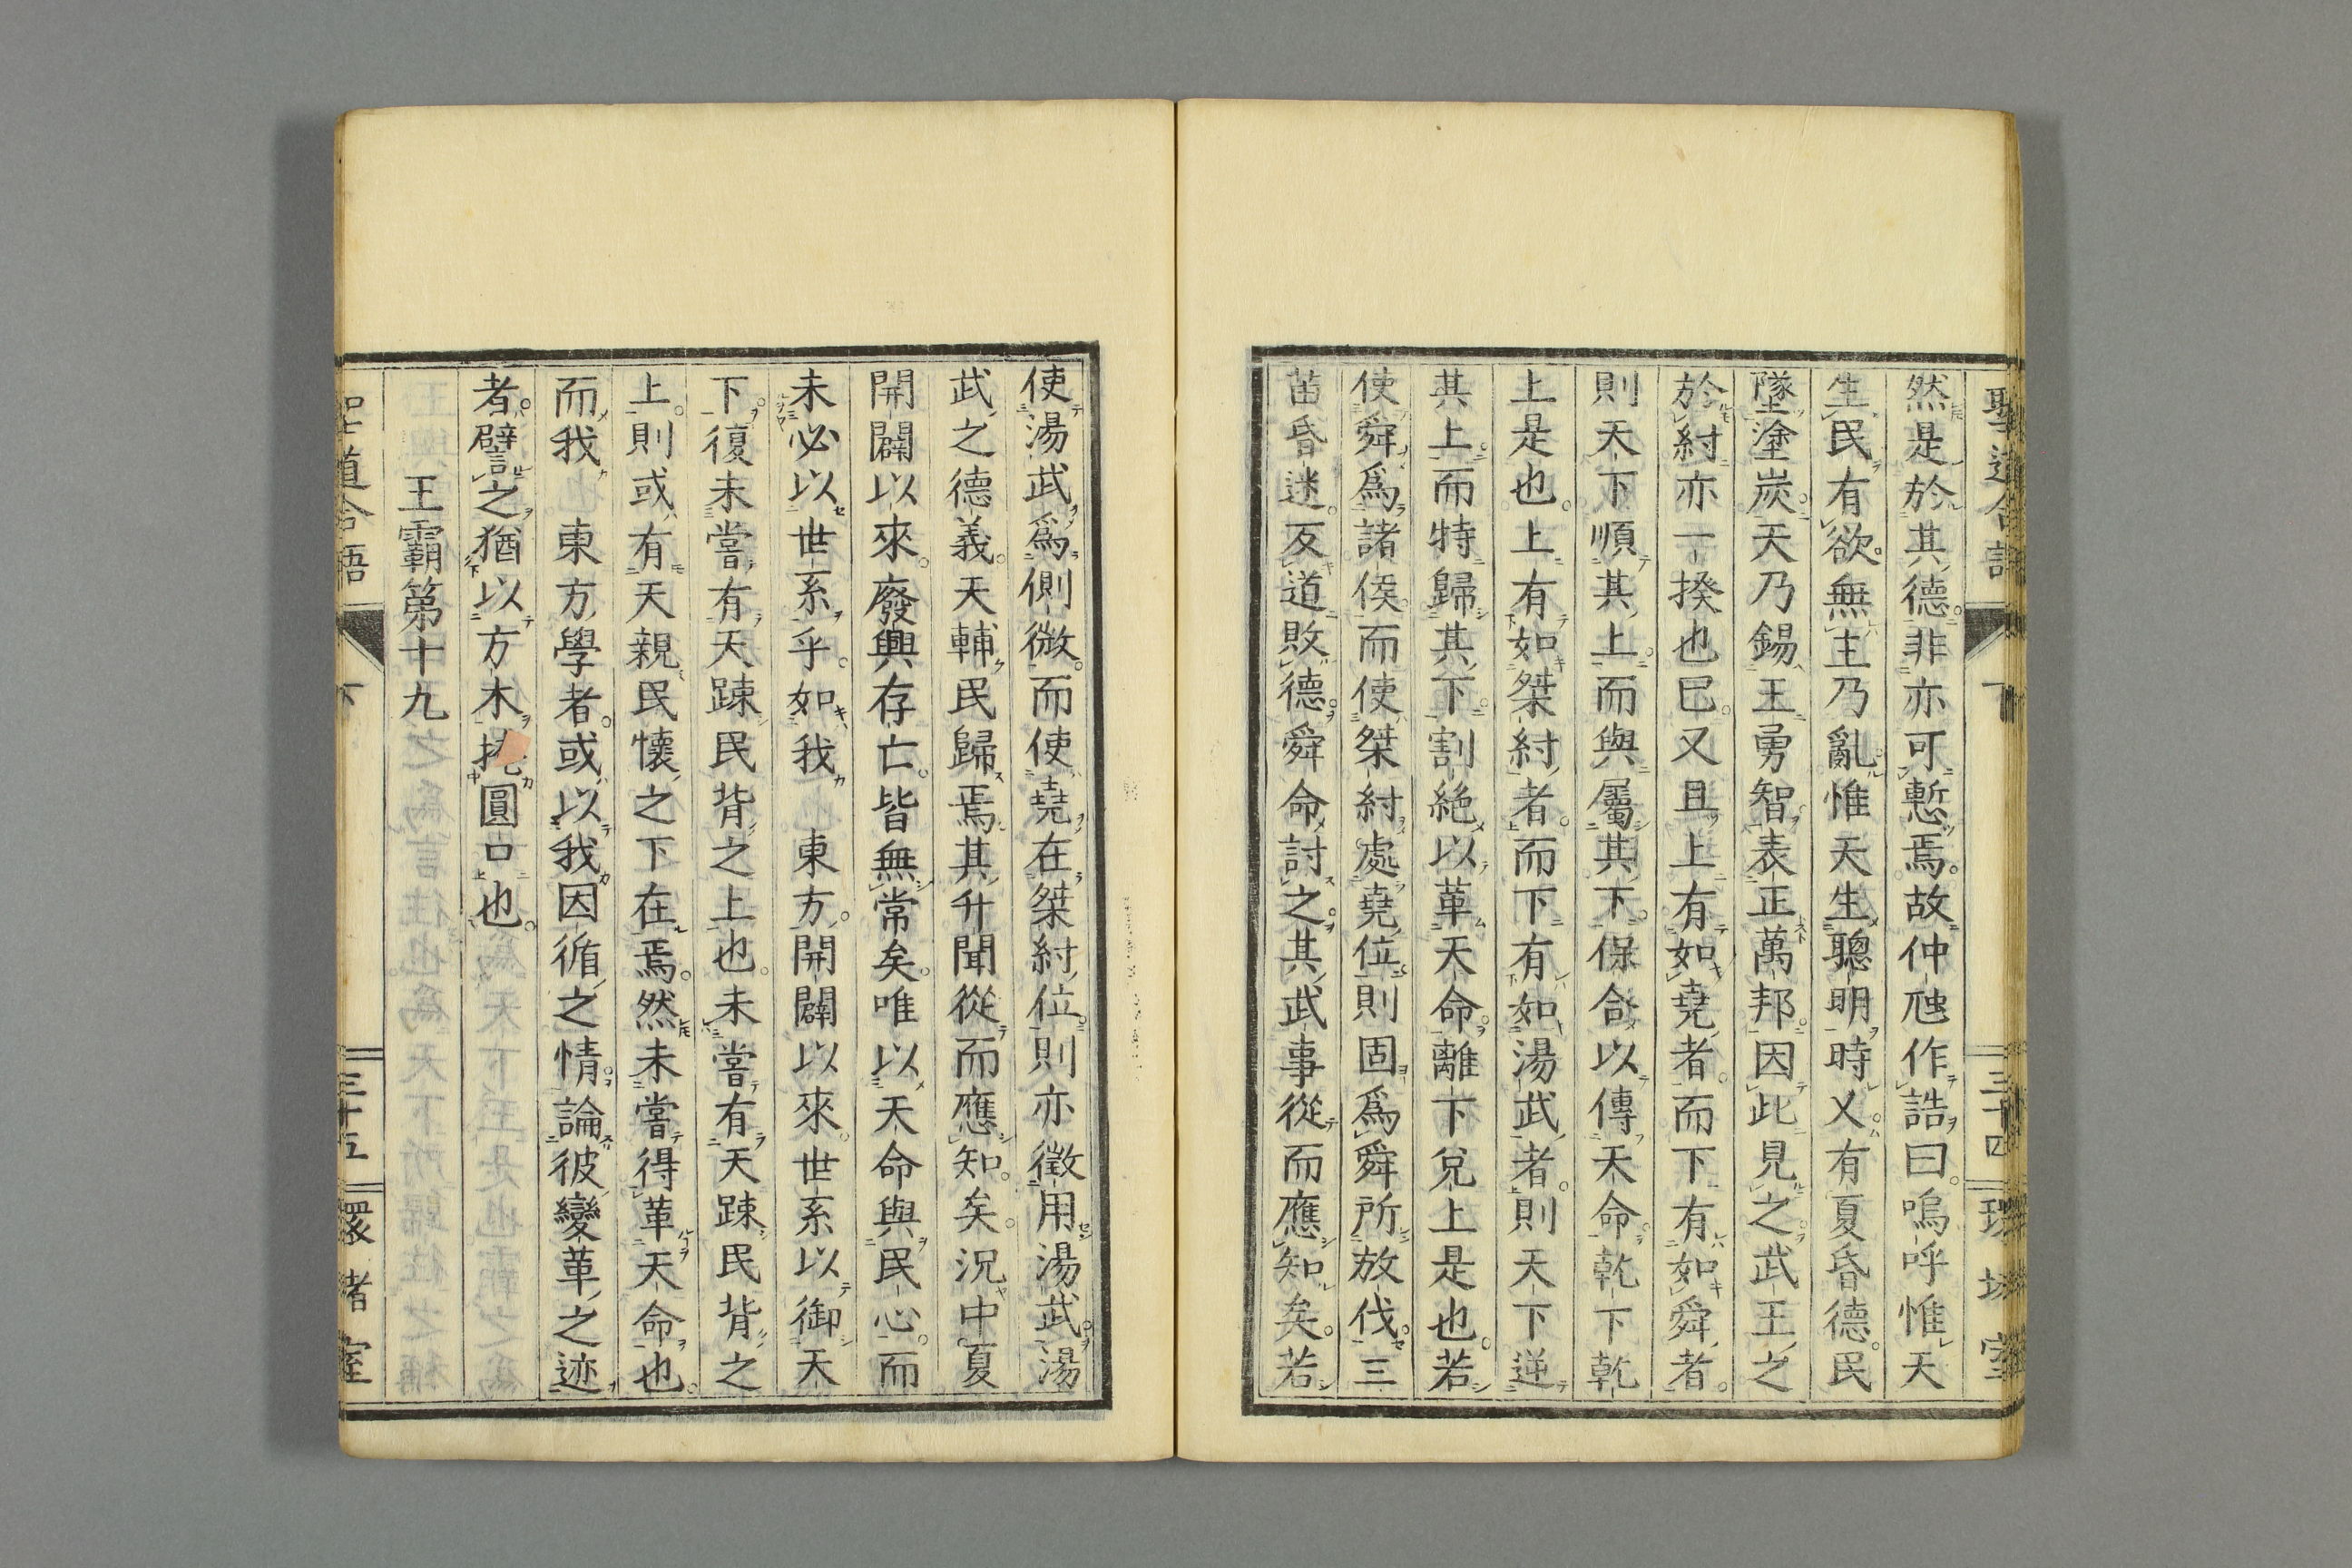 然是於其德非亦可慙焉故仲虺作誥曰嗚呼惟天
生民有欲無主乃亂惟天生聰明時乂有夏昏德民
墜塗炭天乃錫王勇智表正萬邦因此見之武王之
於紂亦一揆也已又且上有如堯者而下有如舜者
則天下順其上而與屬其下保合以傳天命乾下乾
上是也上有如桀紂者而下有如湯武者則天下逆
其上而特歸其下割絶以革天命離下兌上是也若
使舜爲諸侯而使桀紂處堯位則固爲舜所放伐三
苗昏迷反道敗德舜命討之其武事從而應知矣若
使湯武爲側微而使堯在桀紂位則亦徵用湯武湯
武之德義天輔民歸焉其升聞從而應知矣況中夏
開闢以來廢興存亡皆無常矣唯以天命與民心而
未必以世系乎如我　東方開闢以來世系以御天
下復未嘗有天踈民背之上也未嘗有天踈民背之
上則或有天親民懷之下在焉然未嘗得革天命也
而我　東方學者或以我因循之情論彼變革之迹
者譬之猶以方木圓口也
王霸第十九
聖道合語　下　三十五